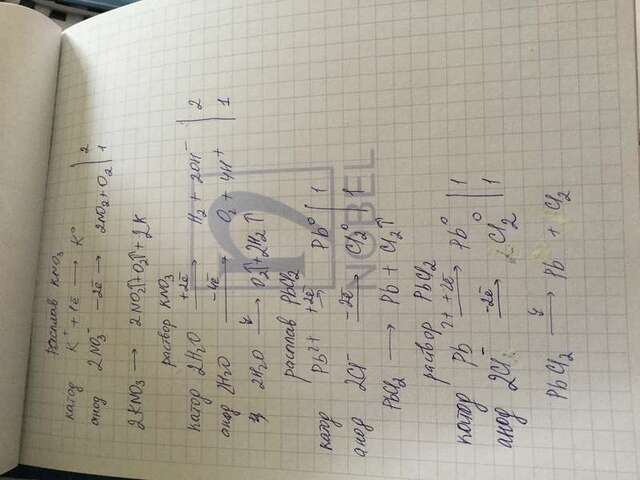 расплав KNO₃
катод K⁺ + 1ē → K⁰ | 2
анод 2NO₃⁻ −2ē → 2NO₂ + O₂ | 1
2KNO₃ → 2NO₂↑ + O₂↑ + 2K
раствор KNO₃
катод 2H₂O +2ē → H₂ + 2OH⁻ | 2
анод 2H₂O −4ē → O₂ + 4H⁺ | 1
2H₂O → O₂↑ + 2H₂↑
расплав PbCl₂
катод Pb²⁺ +2ē → Pb⁰ | 1
анод 2Cl⁻ −2ē → Cl₂⁰ | 1
NOBEL
PbCl₂ → Pb + Cl₂↑
раствор PbCl₂
катод Pb²⁺ +2ē → Pb⁰ | 1
анод 2Cl⁻ −2ē → Cl₂⁰ | 1
PbCl₂ → Pb + Cl₂